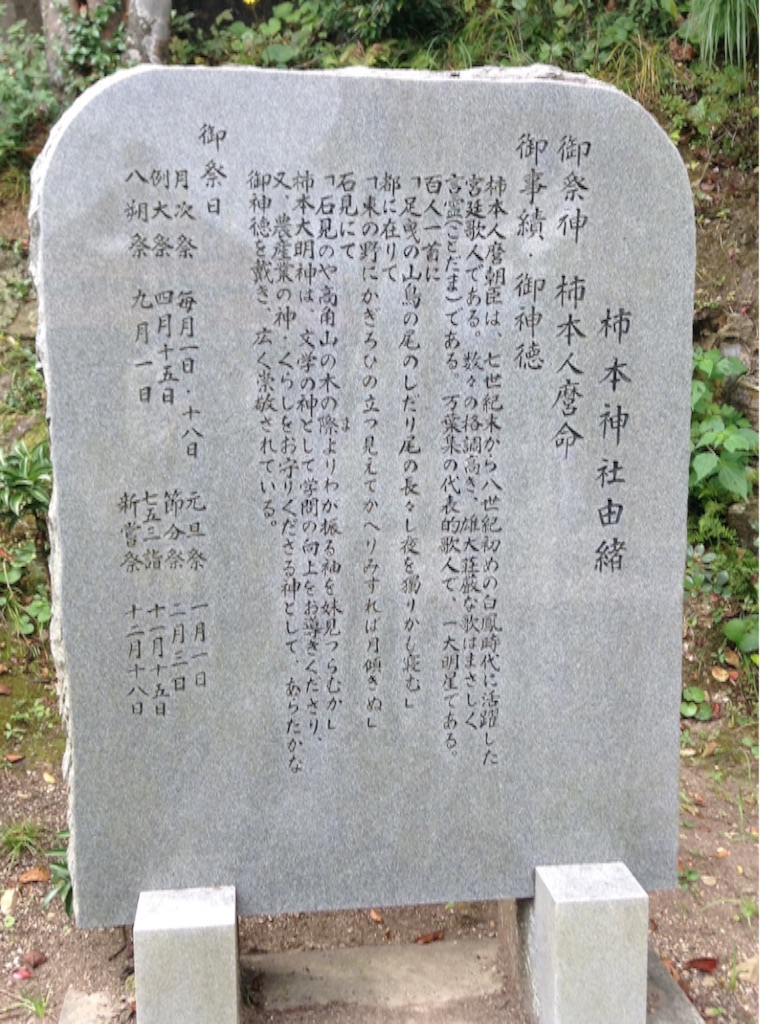 柿本神社由緒
御祭神 柿本人麿命
御事績・御神徳
柿本人麿朝臣は、七世紀末から八世紀初めの白鳳時代に活躍した
宮廷歌人である。数々の格調高き、雄大荘厳な歌はまさしく
言霊(ことだま)である。万葉集の代表的歌人で、一大明星である。
百人一首に
「足曳の山鳥の尾のしだり尾の長々し夜を獨りかも寝む」
都に在りて
「東の野にかぎろひの立つ見えてかへりみすれば月傾きぬ」
石見にて
「石見のや高角山の木の際よりわが振る袖を妹見つらむか」
ま
柿本大明神は、文学の神として学問の向上をお導きくださり、
又、農産業の神・くらしをお守りくださる神として、あらたかな
御神徳を戴き、広く崇敬されている。
御祭日
月次祭 毎月一日・十八日 元旦祭 一月一日
例大祭 四月十五日 節分祭 二月三日
八朔祭 九月一日 七五三詣 十一月十五日
新嘗祭 十二月十八日